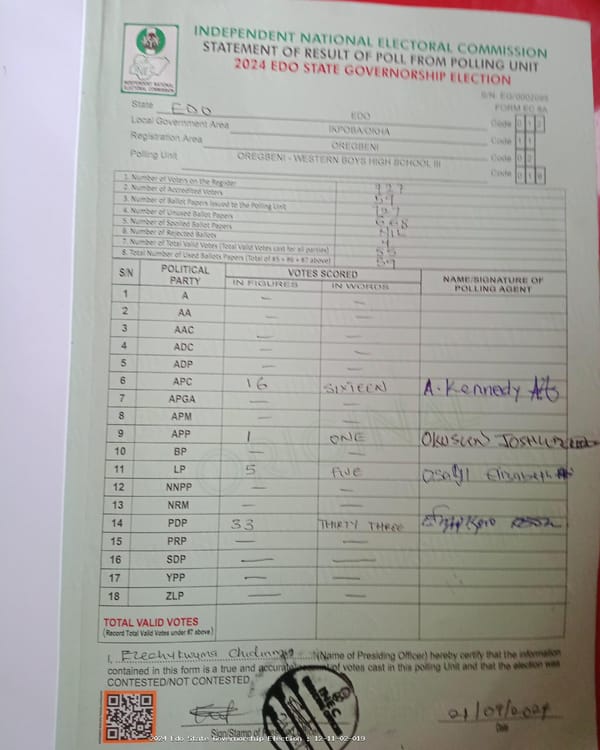 INDEPENDENT NATIONAL ELECTORAL COMMISSION
STATEMENT OF RESULT OF POLL FROM POLLING UNIT
2024 EDO STATE GOVERNORSHIP ELECTION
INDEPENDENT NATIONAL
ELECTORAL COMMISSION
FORM EC 8A
State EDO EDO Code 0 1 2
Local Government Area IKPOBA/OKHA Code 1 1
Registration Area OREGBENI Code 0 2
Polling Unit OREGBENI - WESTERN BOYS HIGH SCHOOL III Code 0 1 9
1. Number of Voters on the Register
2. Number of Accredited Voters 59
3. Number of Ballot Papers Issued to the Polling Unit
4. Number of Unused Ballot Papers
5. Number of Spoiled Ballot Papers
6. Number of Rejected Ballots 4
7. Number of Total Valid Votes (Total Valid Votes cast for all parties) 55
8. Total Number of Used Ballots Papers (Total of #5 + #6 + #7 above) 59
S/N POLITICAL PARTY VOTES SCORED NAME/SIGNATURE OF POLLING AGENT
IN FIGURES IN WORDS
1 A — —
2 AA — —
3 AAC — —
4 ADC — —
5 ADP — —
6 APC 16 SIXTEEN A. Kennedy
7 APGA — —
8 APM — —
9 APP 1 ONE OKUSUN JOSHUA
10 BP — —
11 LP 5 FIVE Elizabeth
12 NNPP — —
13 NRM — —
14 PDP 33 THIRTY THREE
15 PRP — —
16 SDP — —
17 YPP — —
18 ZLP — —
TOTAL VALID VOTES
(Record Total Valid Votes under #7 above)
I, (Name of Presiding Officer) hereby certify that the information
contained in this form is a true and accurate of votes cast in this polling Unit and that the election was
CONTESTED/NOT CONTESTED
INEC
21/09/2024
Sign/Stamp of Date
2024 Edo State Governorship Election : 12-11-02-019